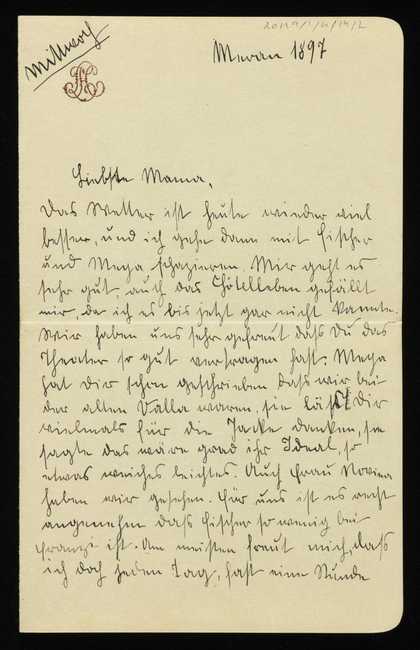 Mittwoch
Meran 1897
Liebste Mama,
Das Wetter ist heute wieder viel
besser, und ich gehe dann mit Fischer
und Mega spazieren. Mir geht es
sehr gut, auch das Hôtelleben gefällt
mir, da ich es bis jetzt gar nicht kannte.
Wir haben uns sehr gefreut daß Du das
Theater so gut vertragen hast. Mega
hat dir schon geschrieben dass wir bei
der alten waren, sie läßt Dir
vielmals für die Jacke danken, sie
sagte das wäre grad ihr Ideal, so
etwas weiches leichtes. Auch Frau
haben wir gesehen. Für uns ist es recht
angenehm daß Fischer so wenig bei
Franzi ist. Am meisten freut mich, daß
ich doch jeden Tag, fast eine Stunde